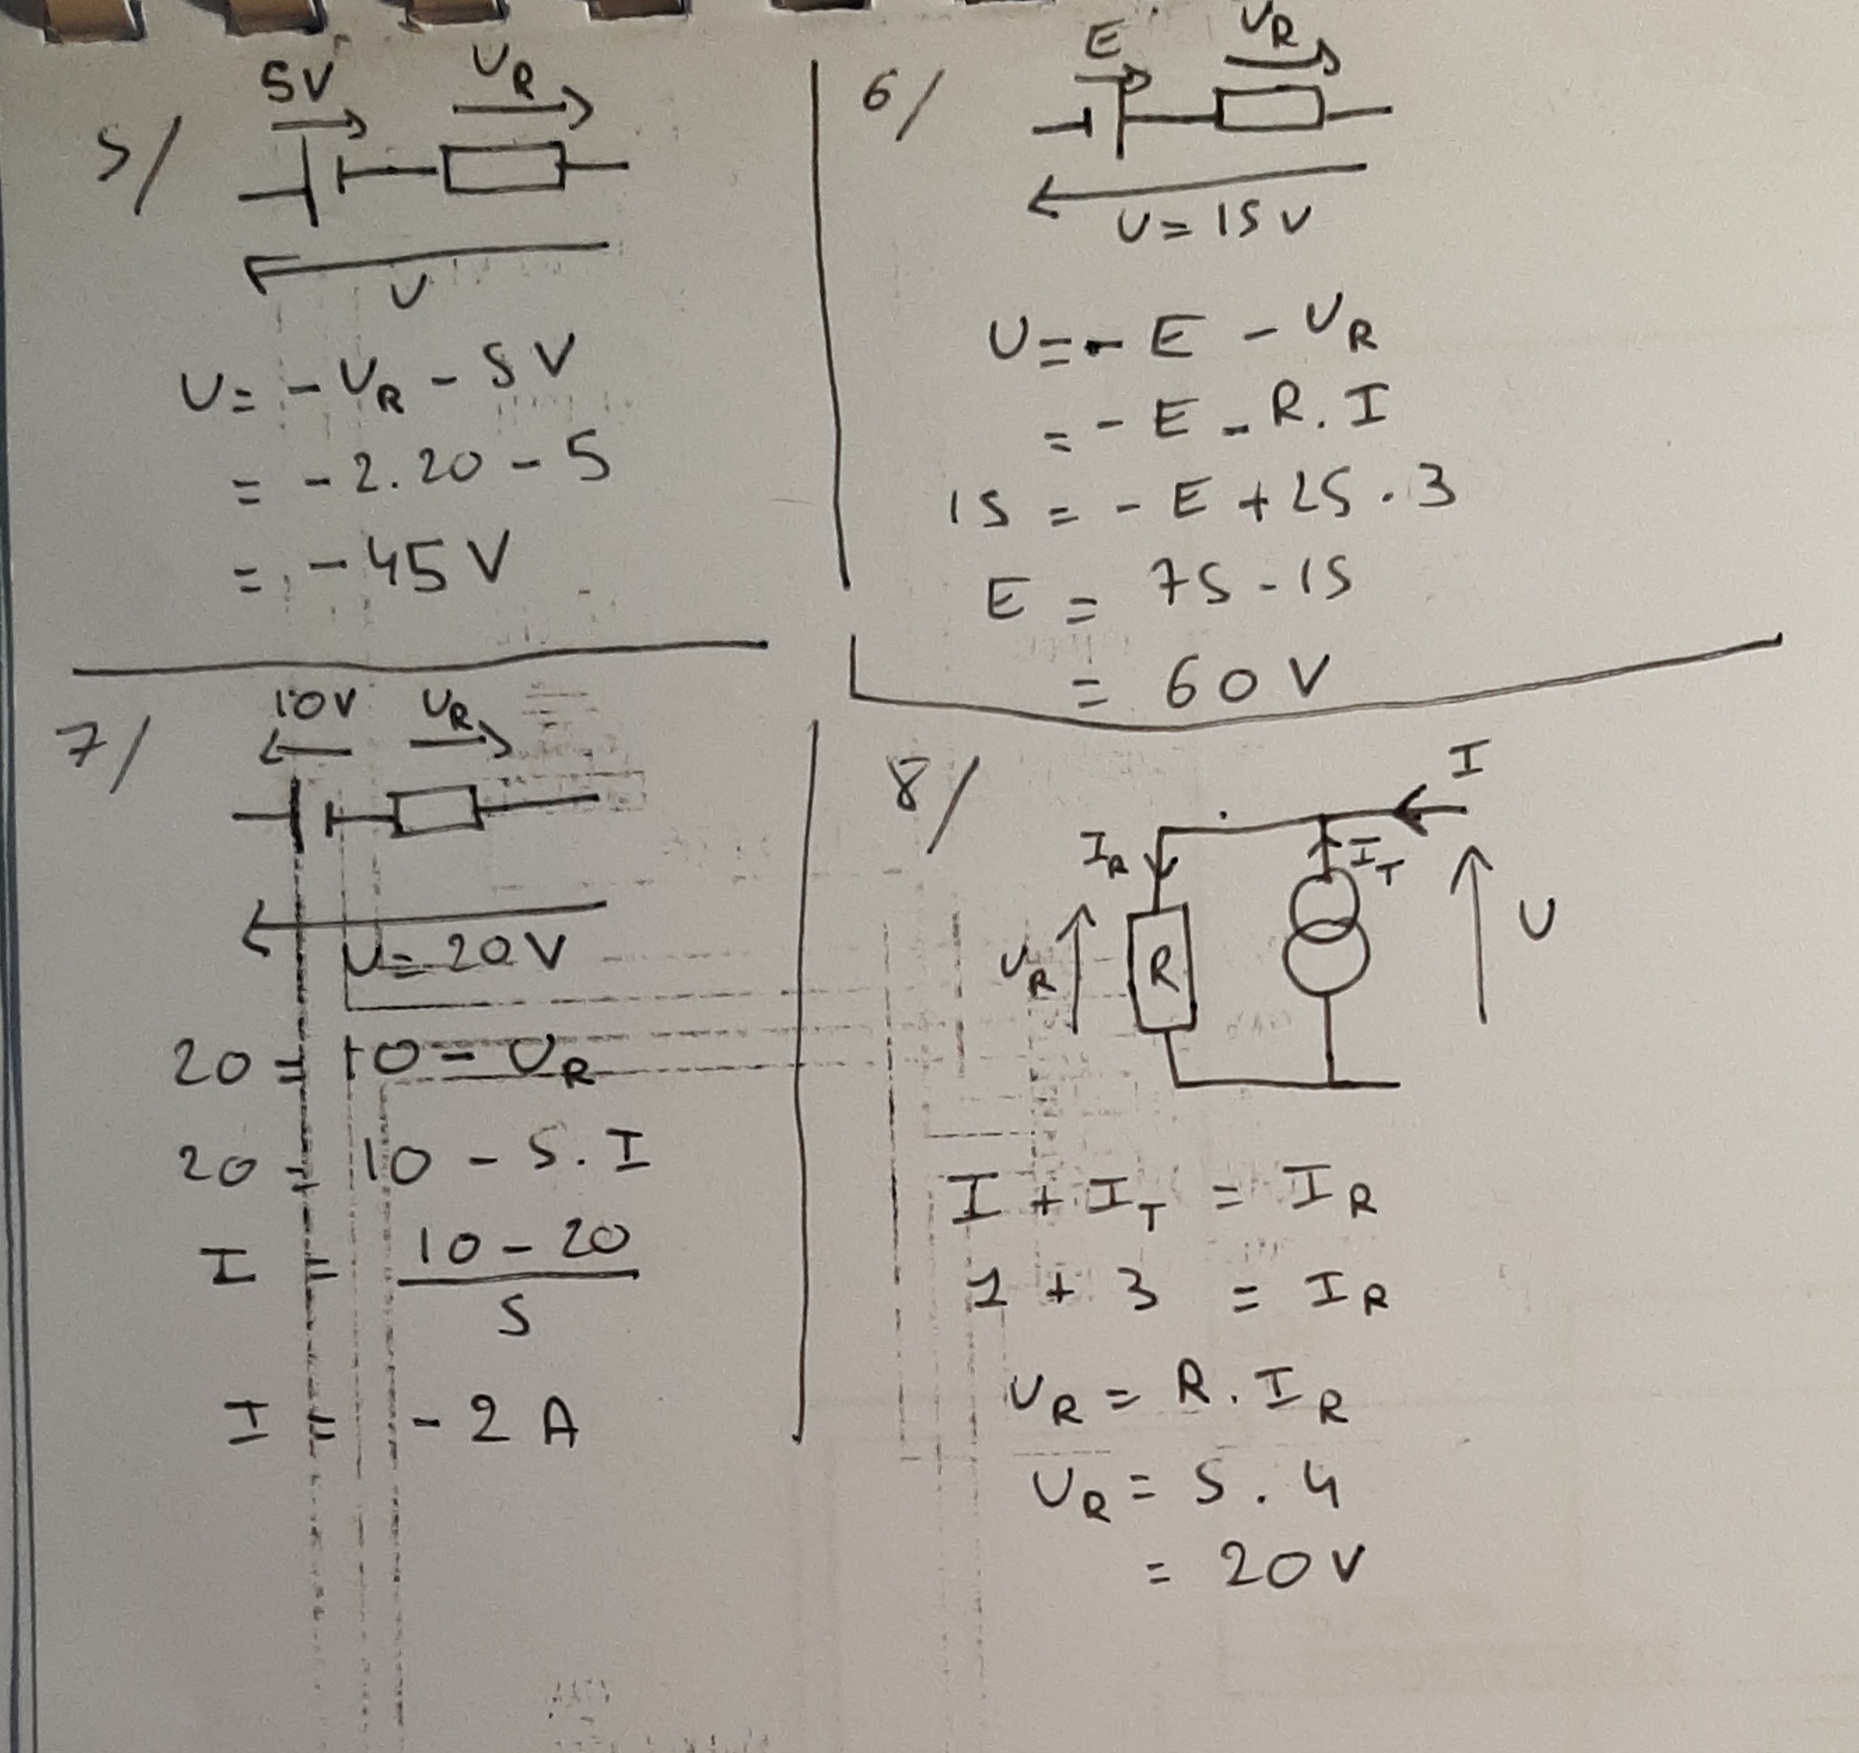 5/
5V
UR
U
U = - UR - 5V
= - 2.20 - 5
= - 45 V
6/
E
UR
U = 15 V
U = - E - UR
= - E - R.I
15 = - E + 25 . 3
E = 75 - 15
= 60 V
7/
10V
UR
U = 20 V
20 = 10 - UR
20 = 10 - 5.I
I = 10 - 20
5
I = - 2 A
8/
I
IR
IT
UR
R
U
I + IT = IR
1 + 3 = IR
UR = R . IR
UR = 5 . 4
= 20 V